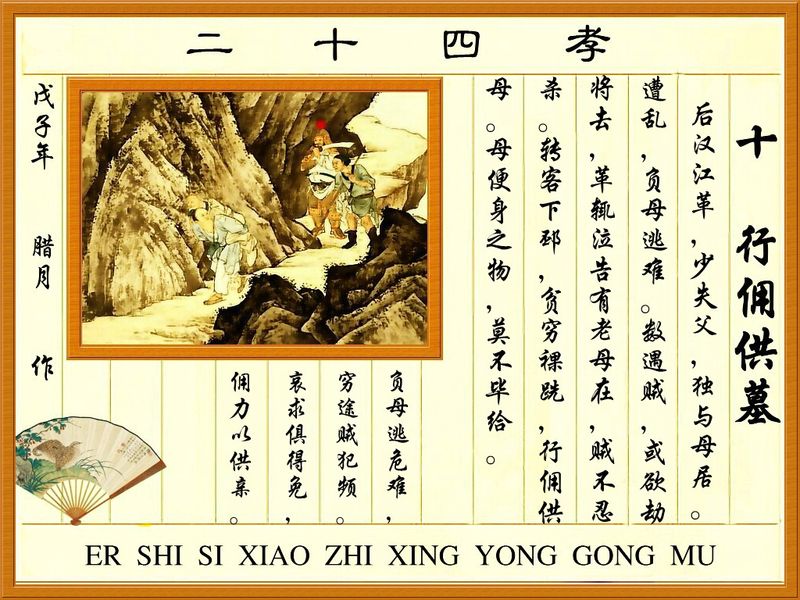 二十四孝
十 行佣供墓
后汉江革，少失父，独与母居。
遭乱，负母逃难。数遇贼，或欲劫
将去，革辄泣告有老母在，贼不忍
杀。转客下邳，贫穷裸跣，行佣供
母。母便身之物，莫不毕给。
负母逃危难，
穷途贼犯频。
哀求俱得免，
佣力以供亲。
戊子年 腊月 作
ER SHI SI XIAO ZHI XING YONG GONG MU